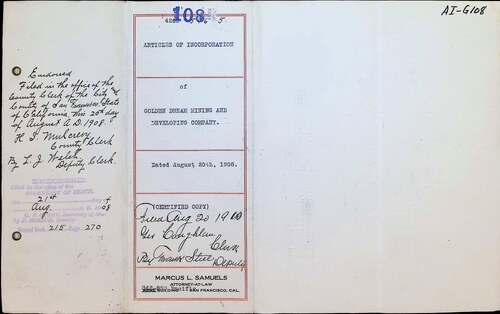 AI-G108
108
ARTICLES OF INCORPORATION
of
GOLDEN DREAM MINING AND
DEVELOPING COMPANY.
Dated August 20th, 1908.
(CERTIFIED COPY)
Filed Aug 20 19
Geo Coughlin
Clerk
By Steel
Deputy
MARCUS L. SAMUELS
ATTORNEY-AT-LAW
BUILDING SAN FRANCISCO, CAL.
Endorsed
Filed in the office of the
County Clerk of the City &
County of San Francisco, State
of California, this 20th day
of August A.D. 1908.
H. I. Mulcrevy
County Clerk
By L. J. Welsh
Deputy Clerk.
Filed in the office of the
SECRETARY OF STATE
21st
Aug. 08
215 Page 270